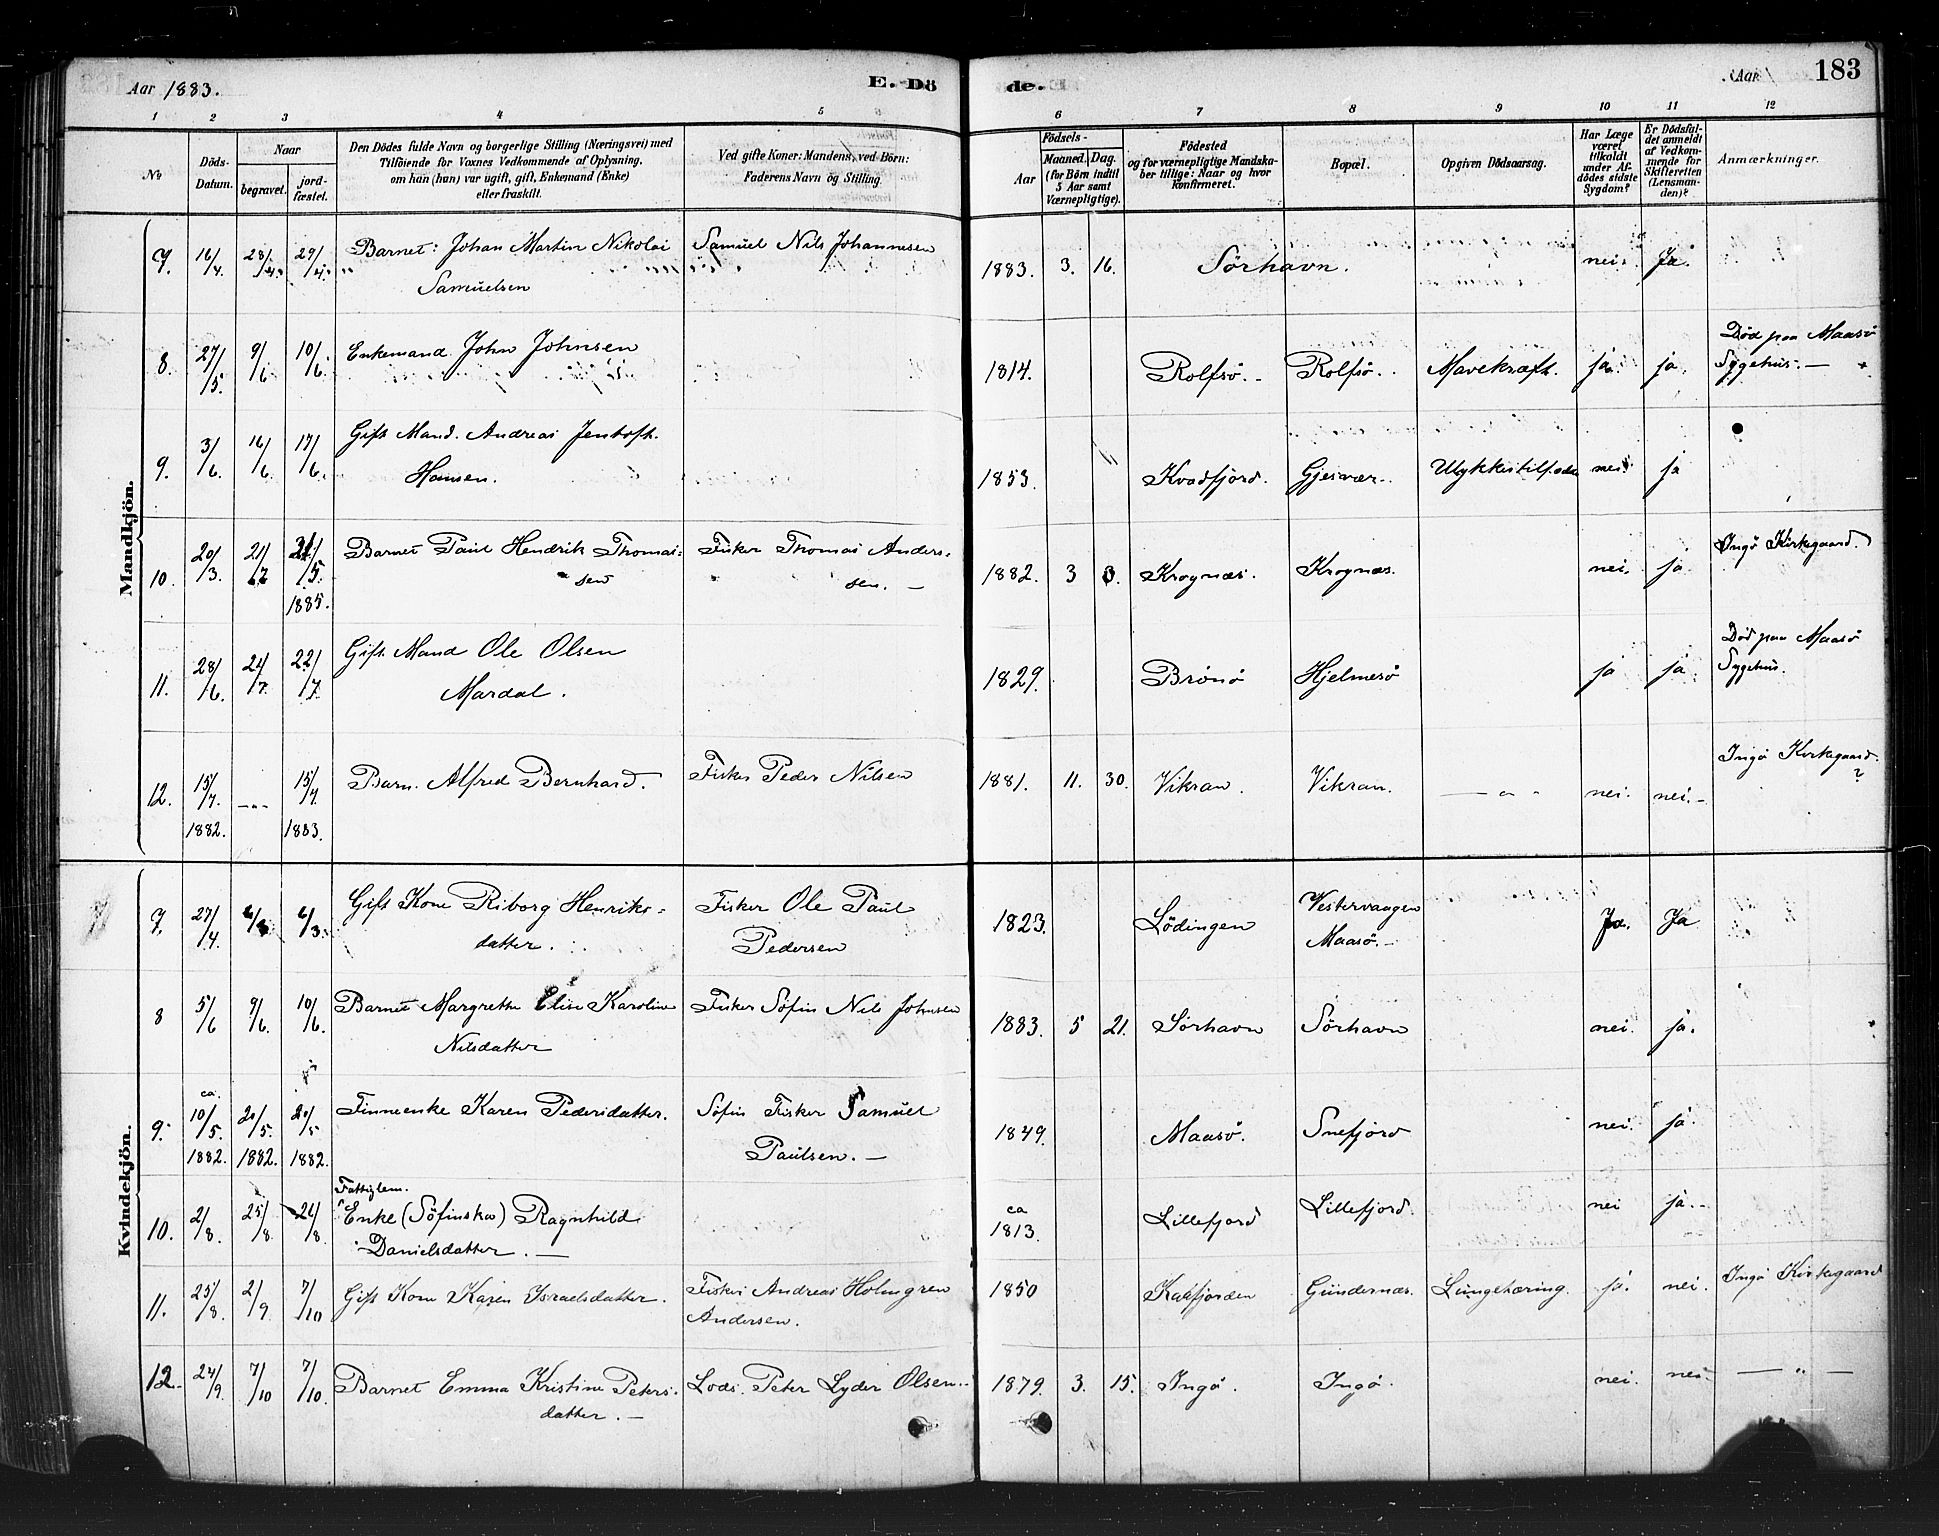 Aar 1883.
E. Dö
de.
Aar
183
1 2 3 4 5 6 7 8 9 10 11 12
No
Döds-Datum.
Naar
begravet.
jord-fæstet.
Den Dödes fulde Navn og borgerlige Stilling (Næringsvei) med
Tilföiende for Voxnes Vedkommende af Oplysning,
om han (hun) var ugift, gift, Enkemand (Enke)
eller fraskilt.
Ved gifte Koner: Mandens, ved Börn:
Faderens Navn og Stilling
Födsels-
Aar
Maaned. Dag.
(for Börn indtil
5 Aar samt
Værnepligtige).
Födested
og for værnepligtige Mandska-
ber tillige: Naar og hvor
konfirmeret.
Bopæl.
Opgiven Dödsaarsag.
Har Læge
været
tilkaldt
under Af-
dödes sidste
Sygdom?
Er Dödsfal-
det anmeldt
af Vedkom-
mende for
Skifteretten
(Lensman-
den)?
Anmærkninger.
Mandkjön.
7. 16/4. 28/4. 29/4. Barnet: Johan Martin Nikolai Samuel Nils Johannesen 1883. 3. 16. Sörhavn. nei. Ja.
Samuelsen
8. 27/5. 9/6 10/6. Enkemand John Johnsen 1814. Rolfsö. Rolfsö. Mavekræft. ja. ja. Död paa Maasö
Sygehus.
9. 3/6 16/6 17/6. Gift Mand. Andreas Jentoft 1853. Kvadfjord. Gjesvær. Ulykkestilfælde nei. ja
Hansen.
10. 20/3. 21/7 21/5. 1885. Barnet Paul Hendrik Thomas- Fisker Thomas Anders- 1882. 3 3. Krognæs. Krognæs. nei. ja. Ingö Kirkegaard.
sen sen.
11. 28/6. 24/7. 22/7. Gift Mand Ole Olsen 1829. Brönö Hjelmesö ja ja. Död paa Maasö
Mardal. Sygehus.
12. 15/7. 1882. -"- 15/7 1883. Barn. Alfred Bernhard. Fisker Peder Nilsen 1881. 11. 30. Vikran. Vikran. — " " nei. nei. Ingö Kirkegaard.
?
Kvindekjön.
7. 27/4 6/3 6/3. Gift Kone Riborg Henriks- Fisker Ole Paul 1823. Lödingen Vestervaagen Ja. Ja
datter. Pedersen Maasö.
8 5/6 9/6. 10/6. Barnet Margrethe Elise Karoline Fisker Söfin Nils Johnsen 1883. 5 21. Sörhavn Sörhavn nei. ja.
Nilsdatter
9. ca. 10/5. 1882. 20/5. 1882. 20/5 1882. Finneenke Karen Pedersdatter. Söfin Fisker Samuel 1849. Maasö. Snefjord nei. ja.
Paulsen.
10. 2/8. 25/8 26/8 Fattiglem. Enke (Söfinska) Ragnhild ca 1813. Lillefjord Lillefjord. nei ja.
Danielsdatter.
11. 25/8. 2/9. 7/10 Gift Kone Karen Israelsdatter. Fisker Andreas Holmgren 1850 Kaafjorden Gundernæs. Lungetæring. ja. nei. Ingö Kirkegaard
Andersen.
12. 24/9. 7/10 7/10. Barnet Emma Kristine Peters- Lods. Peter Lyder Olsen. 1879. 3. 15. Ingö. Ingö. nei. nei. — " —
datter.